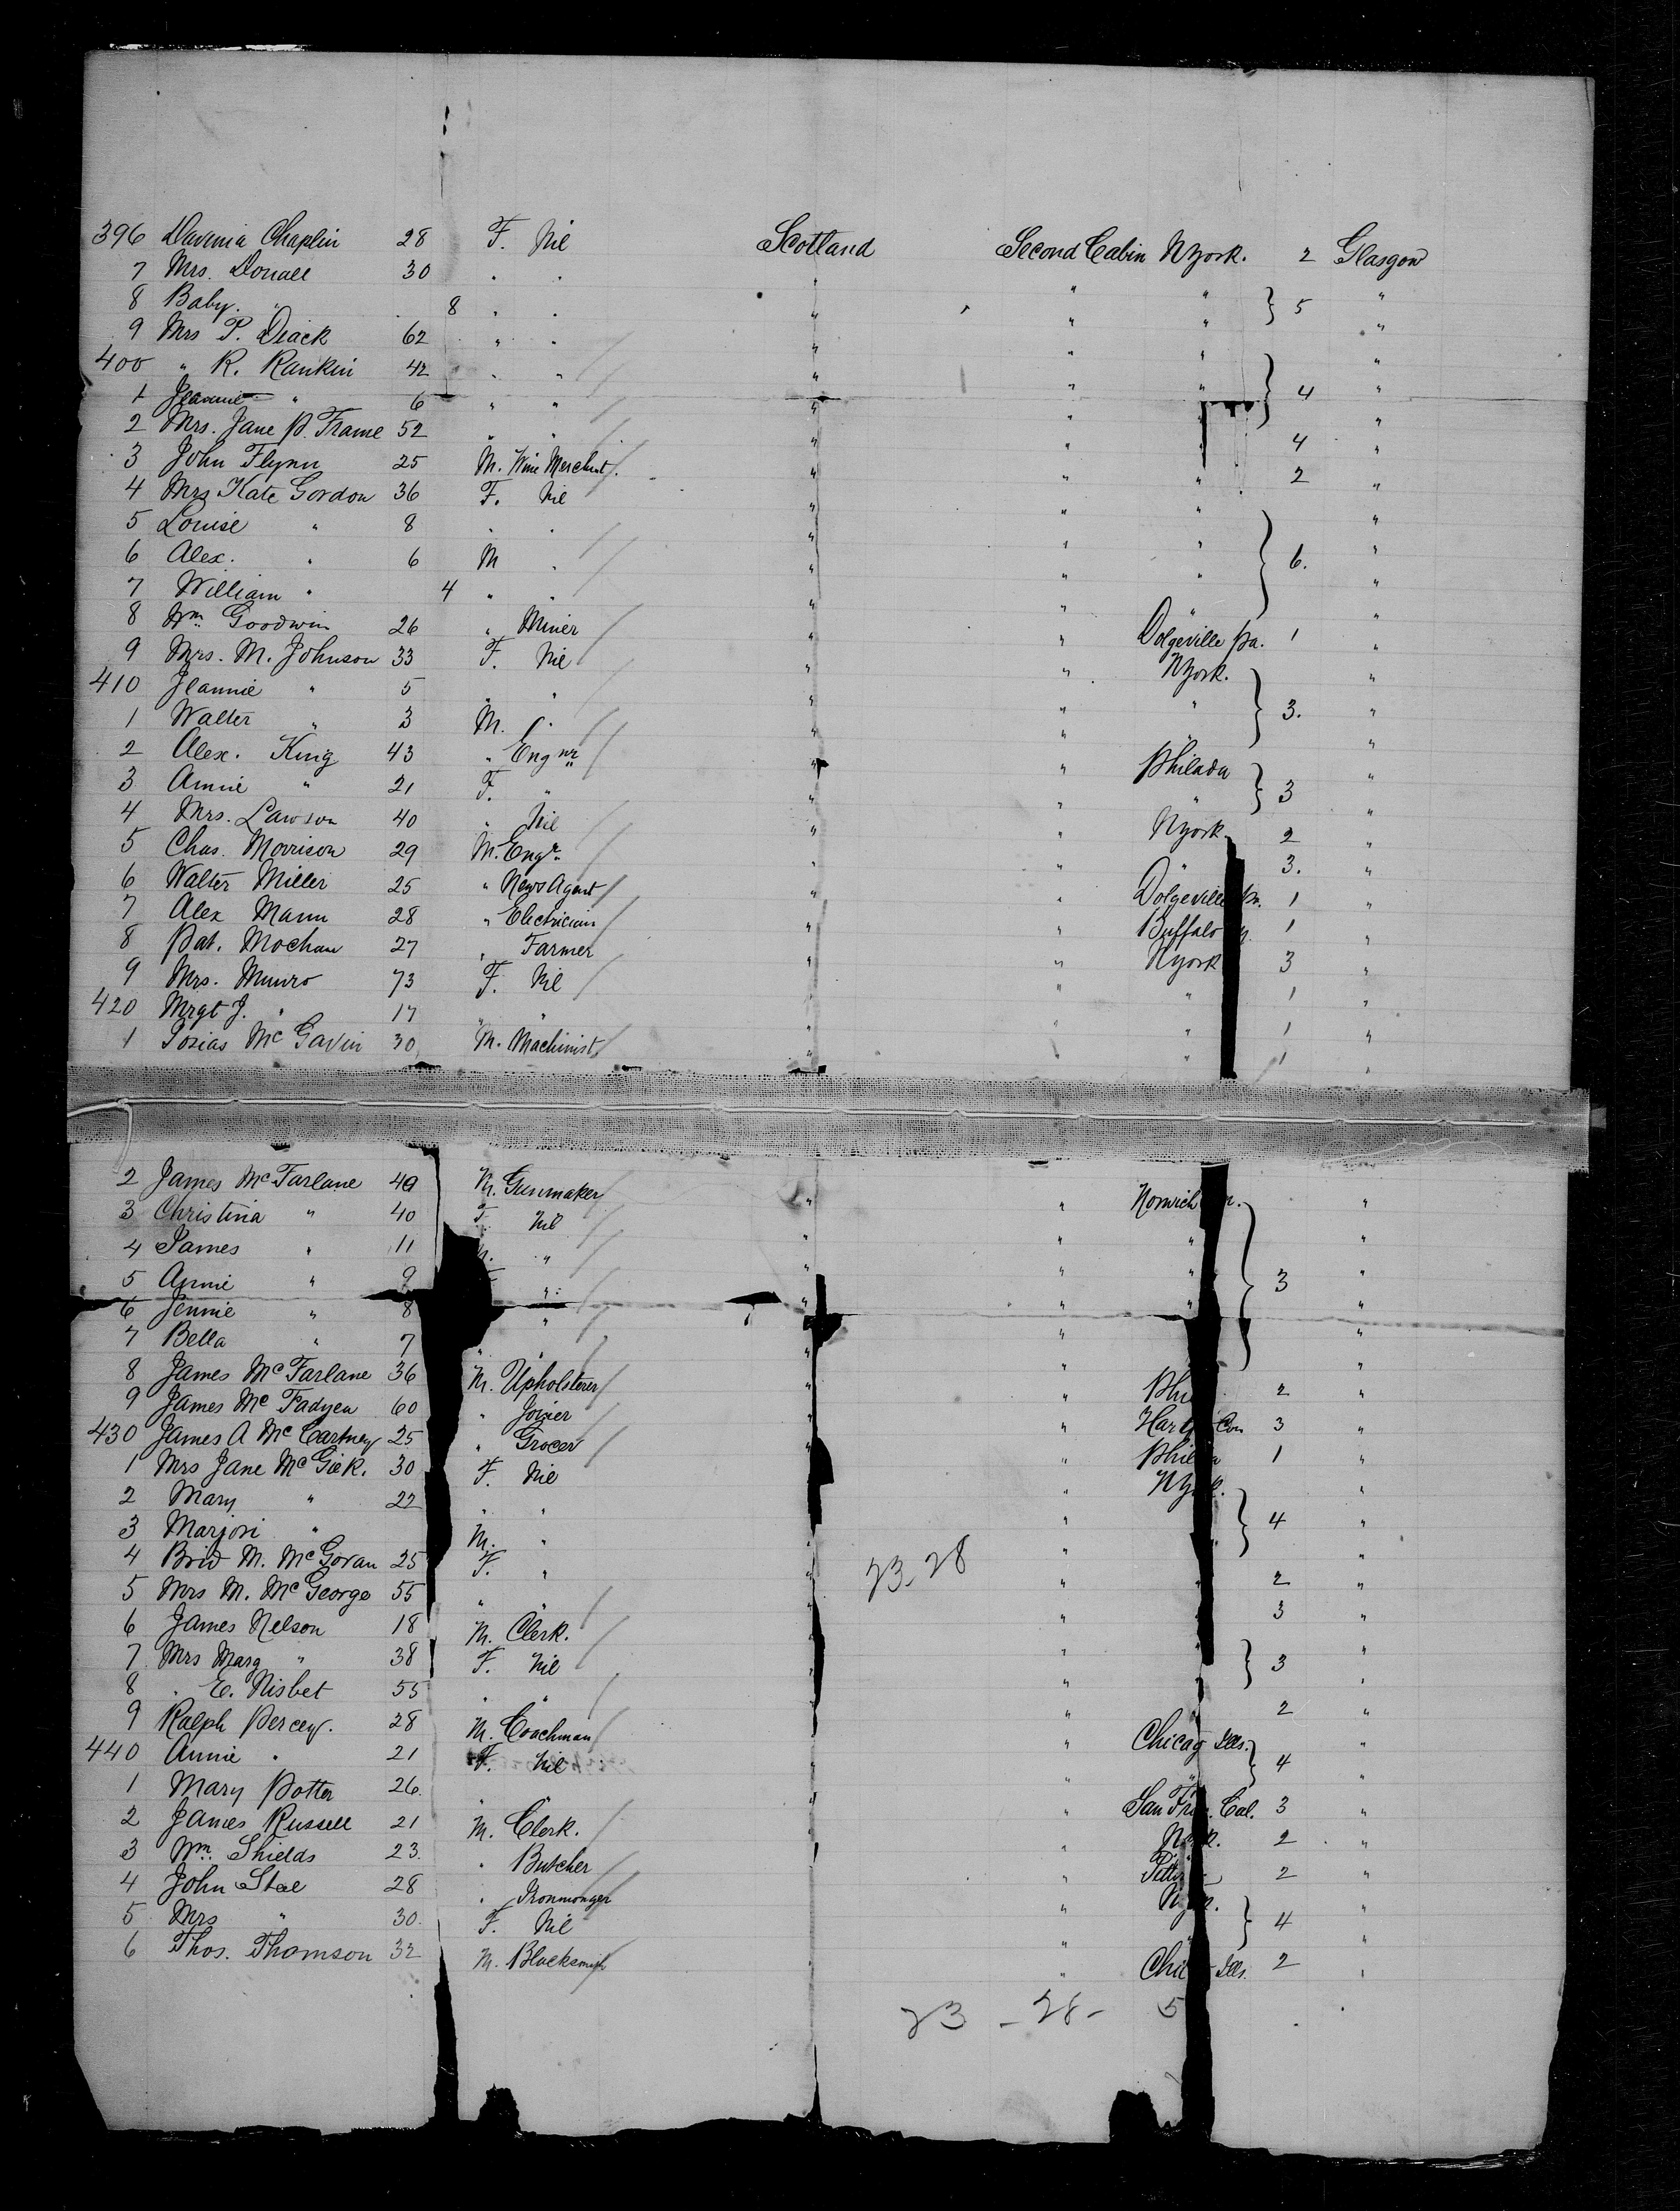 396 Davinia Chaplin 28 F. Nil Scotland Second Cabin NYork. 2 Glasgow
7 Mrs. Donall 30 " " " " " "
8 Baby. " 8 " " " " " } 5 "
9 Mrs P. Diack 62 " " " " " "
400 " R. Rankin 42 " " " " " "
1 Jeannie " 6 " " " " " } 4 "
2 Mrs. Jane P. Frame 52 " " " " " 4 "
3 John Flynn 25 M. Wine Merchant. " " " 2 "
4 Mrs Kate Gordon 36 F. Nil " " " "
5 Louise " 8 " " " " " "
6 Alex. " 6 M " " " " } 6. "
7 William " 4 " " " " " "
8 Wm. Goodwin 26 " Miner " " Dolgeville Pa. 1 "
9 Mrs. M. Johnson 33 F. Nil " " NYork. "
410 Jeannie " 5 " " " " " } 3. "
1 Walter " 3 M. " " " " "
2 Alex. King 43 " Engnr " " Philada "
3 Annie " 21 F. " " " " } 3 "
4 Mrs. Lawson 40 " Nil " " NYork. 2 "
5 Chas. Morrison 29 M. Engr. " " " 3. "
6 Walter Miller 25 " News Agent " " Dolgeville Pa. 1 "
7 Alex Mann 28 " Electrician " " Buffalo 1 "
8 Pat. Mochan 27 " Farmer " " NYork 3 "
9 Mrs. Munro 73 F. Nil " " " 1 "
420 Mrgt J. " 17 " " " " " 1 "
1 Josias McGavin 30 M. Machinist. " " " 1 "
2 James McFarlane 49 M. Gunmaker " " Norwich "
3 Christina " 40 F. Nil " " " "
4 James " 11 M. " " " " "
5 Annie " 9 " " " " } 3 "
6 Jennie " 8 " " " "
7 Bella " 7 " " " " "
8 James McFarlane 36 M. Upholsterer " " Phi 2 "
9 James McFadyen 60 " Joiner " " Hart Con 3 "
430 James A McCartney 25 " Grocer " " Phila 1 "
1 Mrs Jane 30 F. Nil " " NYork. "
2 Mary " 22 " " " " } 4 "
3 Marjori " M. " " " "
4 Brid M. McGovan 25 F. " " 23-28 " " 2 "
5 Mrs M. McGeorge 55 " " " " 3 "
6 James Nelson 18 M. Clerk. " " "
7 Mrs Marg " 38 F. Nil " " } 3 "
8 " E. Nisbet 55 " " " " 2 "
9 Ralph Percey. 28 M. Coachman " " Chicag Ills. "
440 Annie " 21 F. Nil " " " } 4 "
1 Mary Potter 26. " " " " San Fran. Cal. 3 "
2 James Russell 21 M. Clerk. " " NYork. 2 "
3 Wm. Shields 23. " Butcher " " Pitts 2 "
4 John Steel 28 " Ironmonger " " NYork. "
5 Mrs " 30. F. Nil " " " } 4 "
6 Thos. Thomson 32 M. Blacksmith " " Chic Ills. 2 "
23 - 28 - 5